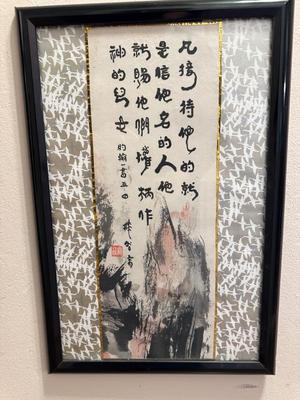 凡接待他的就
是信他名的人他
就賜他們權柄作
神的兒女
約翰一章